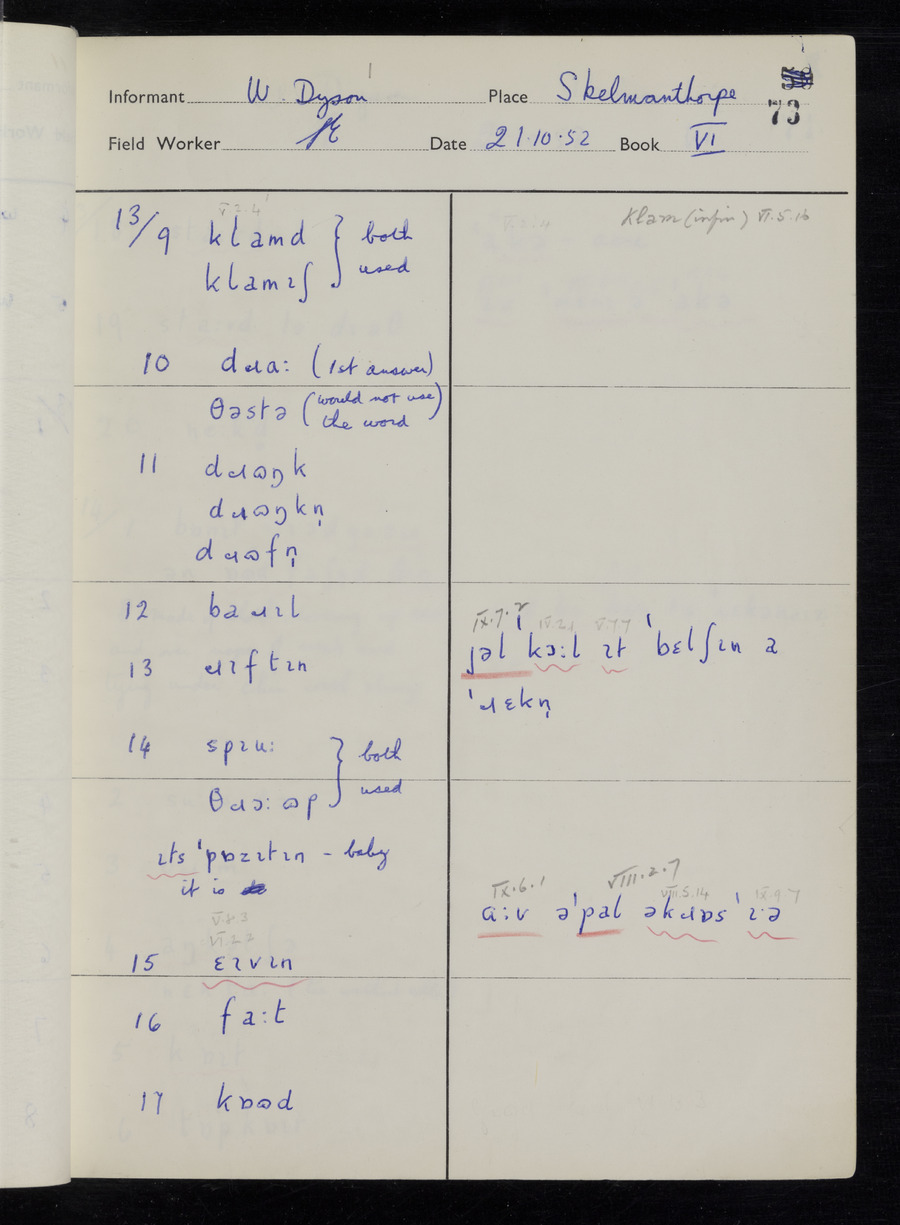 Informant W. Dyson Place Skelmanthorpe
73
Field Worker Date 21.10.52 Book VI
V.2.4
13/9 klamd } both
klamɪʃ } used
10 dɹa: (1st answer)
θəstə (would not use
the word)
11 dɹɷŋk
dɹɷŋkn̩
dɹɷfn̩
12 baɹɪl
13 ɹɪftɪn
14 spɪu: } both
θɹɔ:ɷp } used
ɪts ˈpɒzɪtɪn - baby
it is
V.8.3
VI.2.2
15 ɛɪvɪn
16 fa:t
17 kɒɷd
Klam (infin) VI.5.16
IX.7.2 V.7.7
jəl kɔ:l ɪt ˈbɛlʃɪn a
ˈɹɛkn̩
IX.6.1 VIII.2.7 VIII.5.14 IX.9.7
a:v əˈpal əkɹɒs ˈɪə